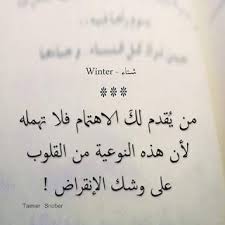 شتاء - Winter
***
من يُقدم لكَ الاهتمام فلا تهمله
لأن هذه النوعية من القلوب
على وشك الإنقراض !
Tamer Snober